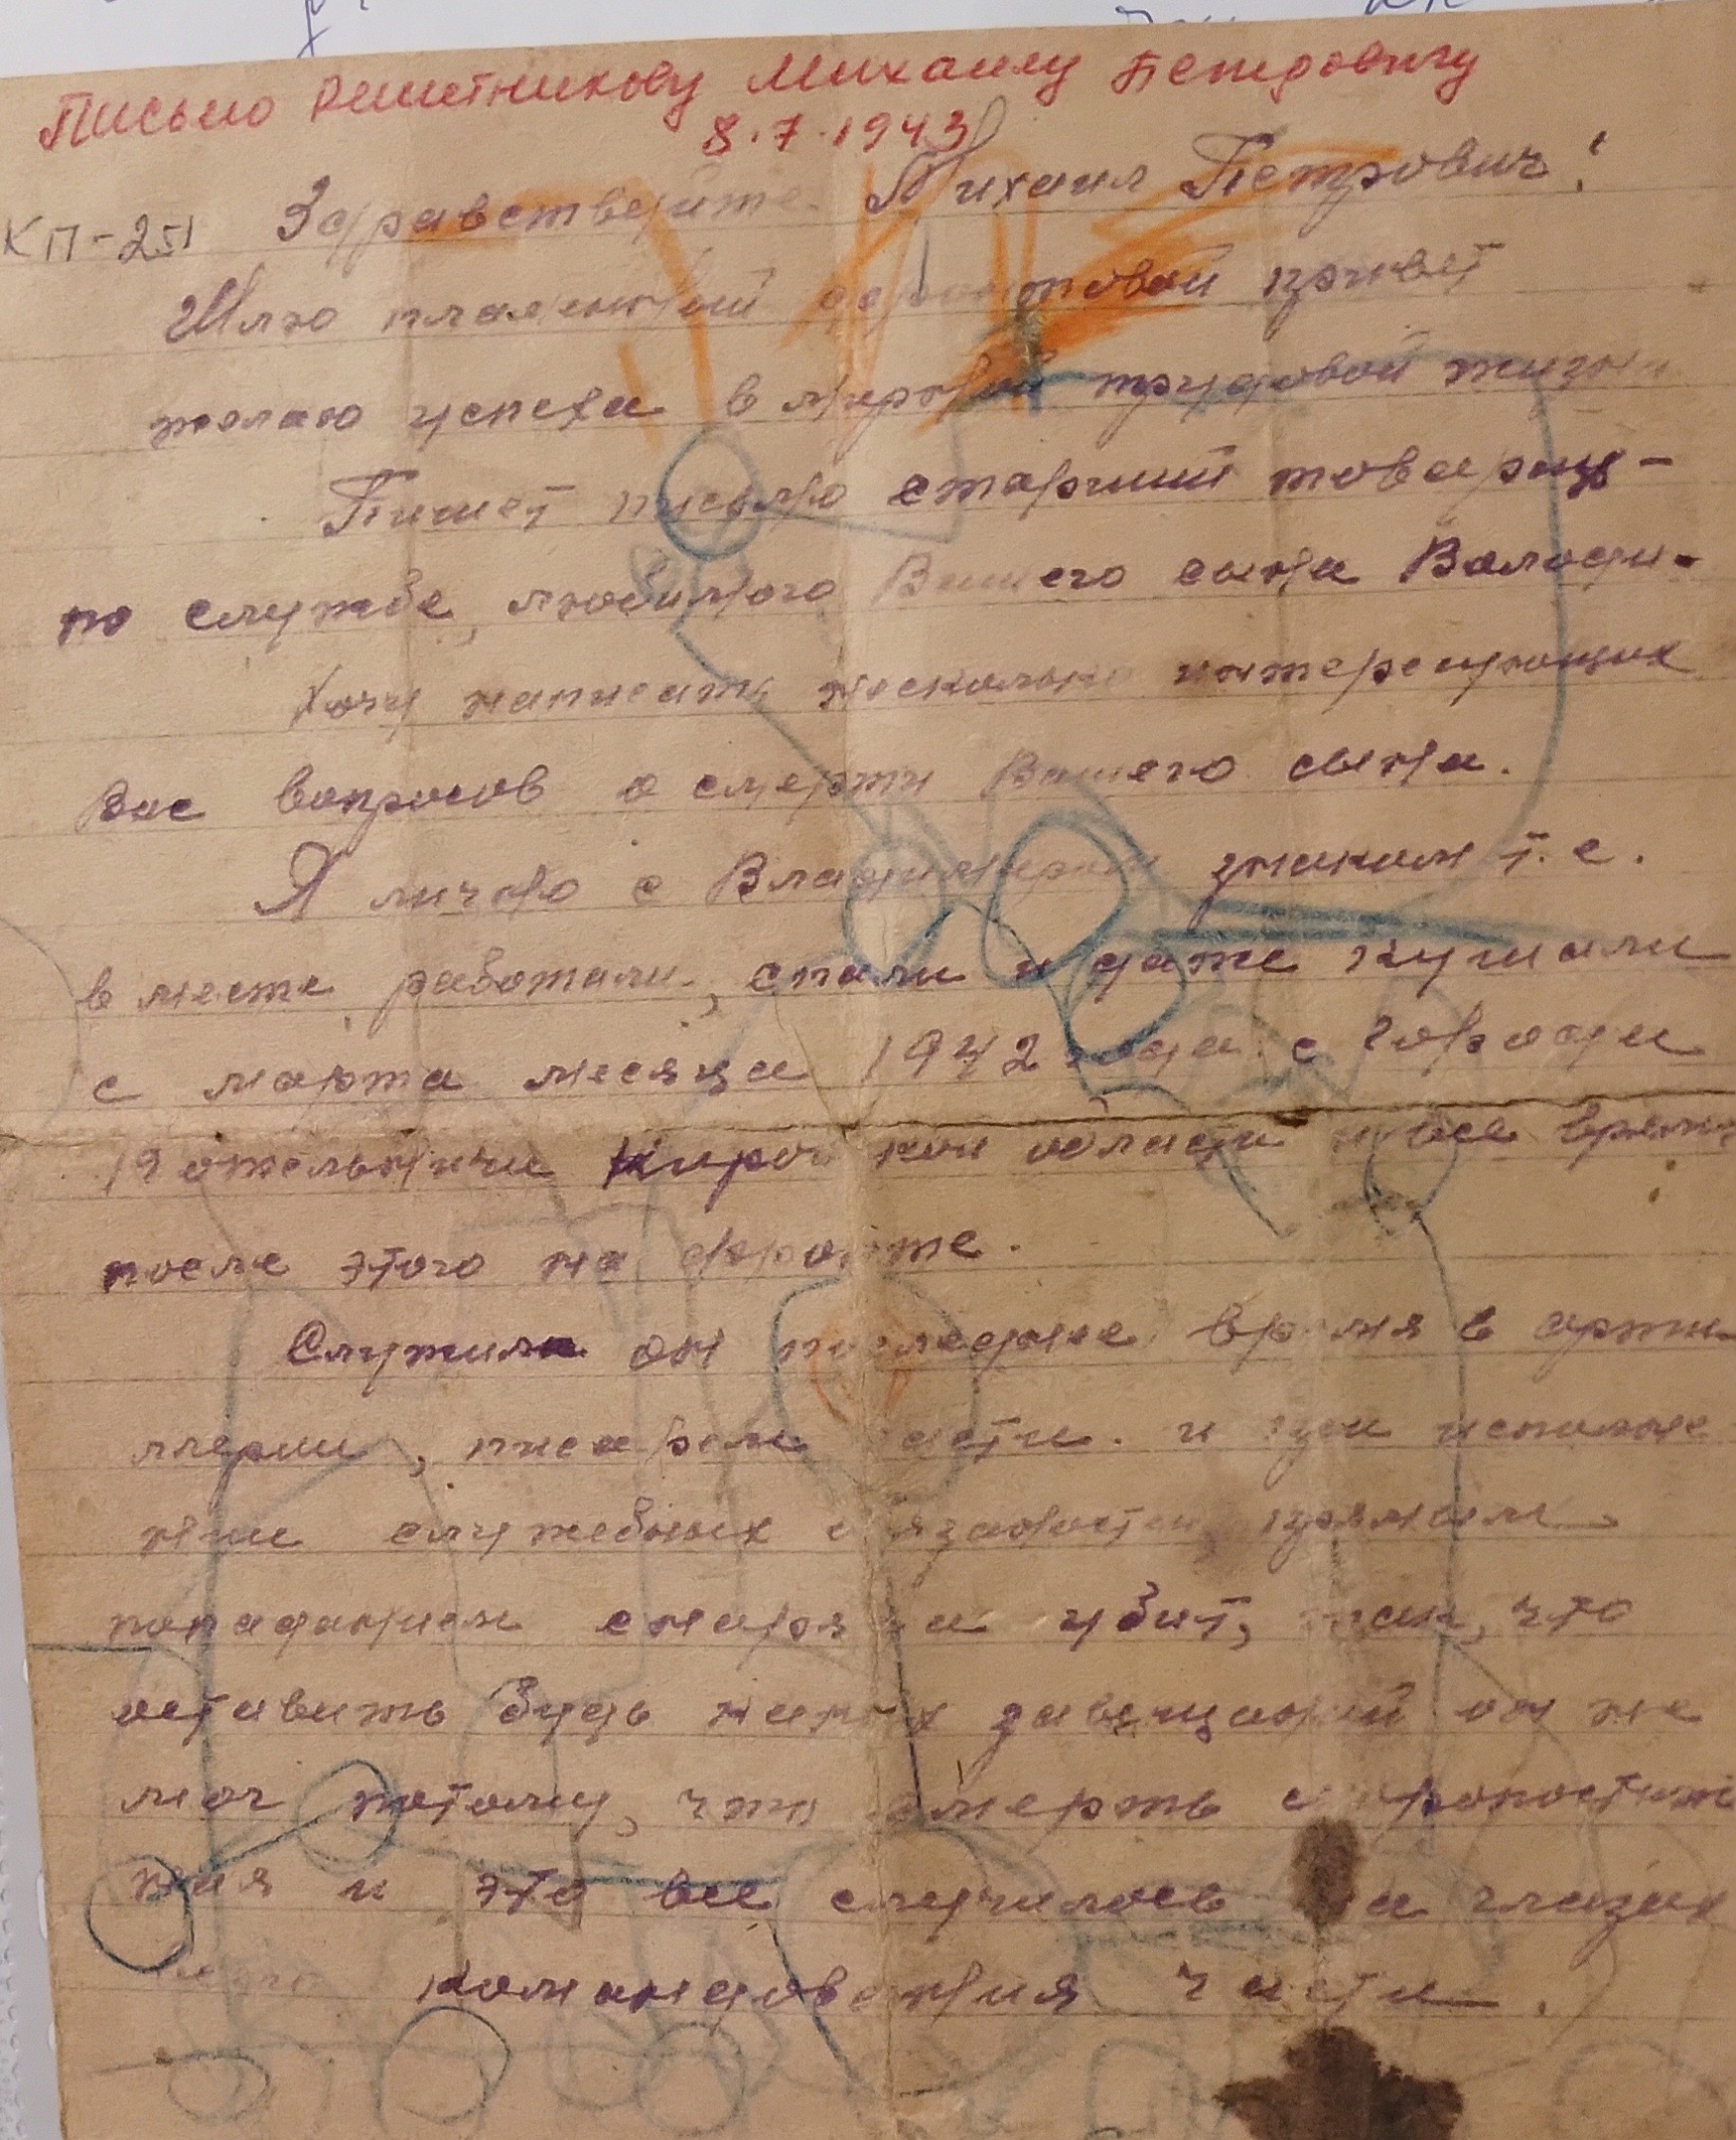 Письмо Решетникову Михаилу Петровичу
8.7.1943
КП-251
Здравствейте Михаил Петрович!
Шлю пламенный фронтовой привет
желаю успеха в мирной трудовой жизни
Пишет письмо старший товарищ-
по службе, любимого Вашего сына Володи-
Хочу написать несколько интересующих
Вас вопросов о смерти Вашего сына.
Я лично с Владимиром знаком т.е.
вместе работали, спали и даже кушали
с марта месяца 1942 года с города
Котельнича Кировской области и все время
после этого на фронте.
Служил он последнее время в арти-
лерии, писарем части. и при исполне
нии служебных обязаностей, прямым
попаданием снаряда убит, так, что
оставить будь каких завещаний он не
мог потому, что смерть скоропостиж
ная и это все случилось на глазах
командования части.